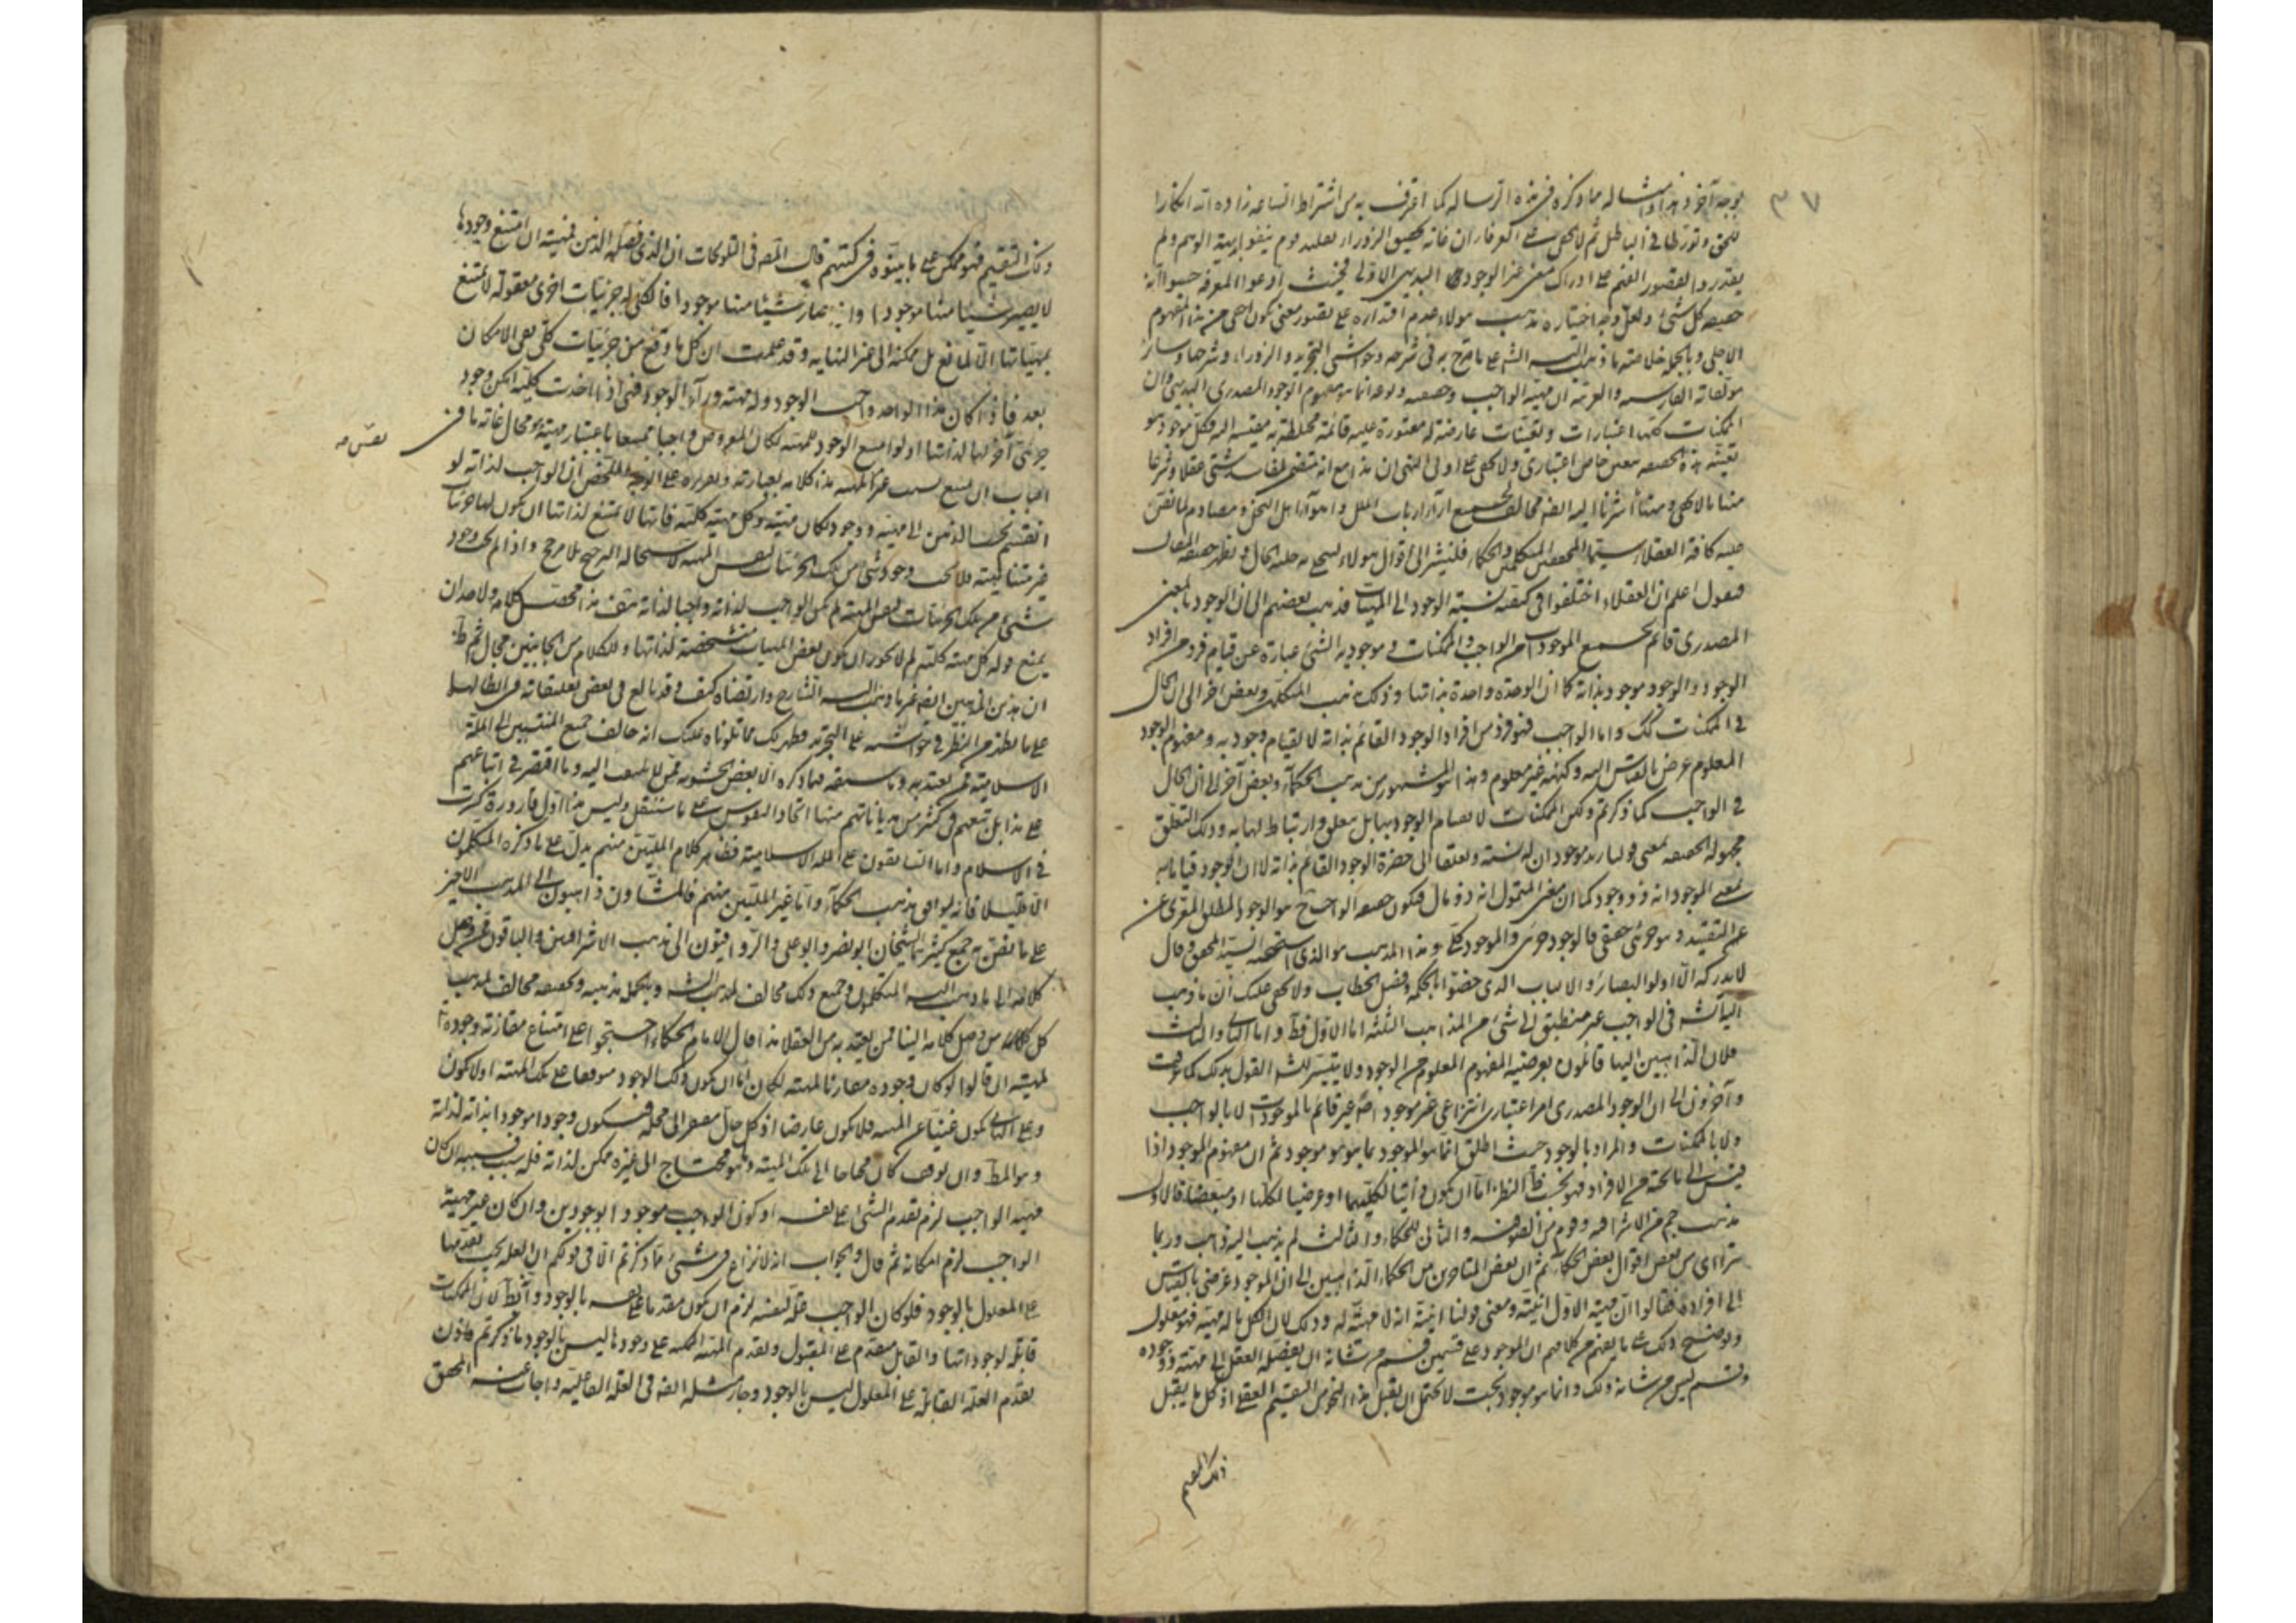 ٣٧
بوجه آخر وهذا وامثاله مما ذكره في هذه الرسالة كما اعترف به من اشتراط
للحق وتورطا في الباطل ثم لا يخفى على
يقدروا لقصور الفهم على ادراك معنى غير الوجود البديهي الاولى فحيث ادعوا المعرفة حسبوا انه
حقيقة كل شئ ولعل وجه اختياره مذهب هؤلاء عدم اقتداره على تصور معنى يكون اجلى من هذا المفهوم
الاجلى وبالجملة خلاصة ما ذهب اليه الشارح على ما صرح به في شرحه وحواشي التجريد والزوراء وشرحها وسائر
مؤلفاته الفارسية والعربية ان مهية الواجب وحقيقته انما هو مفهوم الوجود المصدري البديهي وان
الممكنات كلها اعتبارات وتعينات عارضة له معتورة عليه قائمة به فكل موجود هو
تعينه هذه الحقيقة بمعنى خاص اعتباري ولا يخفى على اولى النهى ان هذا مع انه متضمن لمفاسد شتى عقلا وشرعا
منها ما لا يخفى ومنها ما اشرنا اليه ايضا مخالف لجميع آراء ارباب الملل واهواء اهل النحل ومصادم لما تفق
عليه كافة العقلاء سيما المحققين المتكلمين والحكماء فلنشر الى اقوال هؤلاء
فنقول اعلم ان العقلاء اختلفوا في كيفية نسبة الوجود الى المهيات فذهب بعضهم الى ان الوجود بالمعنى
المصدري قائم بجميع الموجودات من الواجب والممكنات وموجودية الشئ عبارة عن قيام فرد من افراد
الوجود والوجود موجود بذاته كما ان الوحدة واحدة بذاتها وذلك مذهب المتكلمين وبعض آخر الى ان الحال
في الممكنات كذلك واما الواجب فهو فرد من افراد الوجود القائم بذاته لا لقيام وجود به ومفهوم الوجود
المعلوم عرضي بالقياس اليه وكنهه غير معلوم وهذا هو المشهور من مذهب الحكماء وبعض آخر الى ان الحال
في الواجب كما ذكرتم ولكن الممكنات لا لقيام الوجود بها بل بتعلق وارتباط لها به وذلك التعلق
مجهولة الحقيقة فمعنى قولنا زيد موجود ان له نسبة وتعلقا الى حضرة الوجود القائم بذاته لا ان الوجود قائما به
فمعنى الموجود انه ذو وجود كما ان معنى المتمول انه ذو مال فيكون حقيقة الواجب هو الوجود المطلق المعرى عن
عن التقييد وهو جزئي حقيقي فالوجود جزئي والموجود كلي وهذا المذهب هو الذي استحسنه السيد المحقق وقال
لا يدركه الا اولوا البصائر والالباب الذي خصوا بالحكمة وفصل الخطاب ولا يخفى عليك ان ما ذهب
اليه الشارح في الواجب غير منطبق على شئ من المذاهب الثلثة اما الاول فظ واما الثاني والثالث
فلان الذاهبين اليها قائلون بعرضية المفهوم المعلوم من الوجود ولا يتيسر للشارح القول بذلك كما عرفت
وآخرون الى ان الوجود المصدري امر اعتباري انتزاعي غير موجود اصلا غير قائم بالموجودات لا بالواجب
ولا بالممكنات والمراد بالوجود حيث اطلق انما هو الموجود بما هو هو موجود ثم ان مفهوم الموجود اذا
قيس الى ما تحته من الافراد فهو بحسب النظر اما ان يكون ذاتيا لكلها او عرضيا لكلها او مبعضا فالاول
مذهب جم من الاشراقية وقوم من الصوفية والثاني للحكماء والثالث لم يذهب اليه ذاهب وربما
يتراءى من بعض اقوال بعض الحكماء ثم ان بعض المتأخرين من الحكماء الذاهبين الى ان الموجود عرضي بالقياس
الى افراده فقالوا ان مهية الاول انيته ومعنى قولنا انيته انه لا مهية له وذلك لان الكل ما له مهية فهو معلول
وتوضيح ذلك على ما يفهم من كلامهم ان الموجود على قسمين قسم من شأنه ان يفصله العقل الى مهية ووجوده
وقسم ليس من شأنه ذلك وانما هو موجود بحت لا يحتمل ان يقبل هذا النحو من التقسيم العقلي اذ كل ما يقبل
ذلك التقسيم
وذلك التقسيم فهو ممكن على ما بينوه في كتبهم قال المصنف في التلويحات ان الذي فصله الذهن فمهيته ان امتنع وجودها
لا يصير شيئا منها موجودا وان صار شيئا منها موجودا فالكلي له جزئيات اخرى معقولة لا تمتنع
بمهياتها الا لمانع بل ممكنة الى غير النهاية وقد علمت ان كل ما وقع من جزئيات كلي بقي الامكان
بعد فاذا كان هذا الواحد واجب الوجود وله مهية وراء الوجود فهي اذا اخذت كلية امكن وجود
جزئي آخر لها لذاتها اذ لو امتنع الوجود للمهية لكان المفروض واجبا ممتنعا باعتبار مهيته وهو محال غاية ما في
نفس مهـ
الباب ان يمتنع بسبب غير المهية هذا كلامه بعبارته وتقريره على الوجه الملخص ان الواجب لذاته لو
انقسم بحسب الذهن الى مهية ووجود لكان مهيته كلية وكل مهية كلية فانها لا تمتنع لذاتها ان يكون لها جزئيات
غير متناهية فلا يجب وجود شئ من تلك الجزئيات لنفس المهية لاستحالة الترجيح بلا مرجح واذا لم يجب وجود
شئ من تلك الجزئيات لنفس المهية لم يكن الواجب لذاته واجبا لذاته هف هذا محصل كلامه ولاحد ان
يمنع قوله كل مهية كلية لم لا يجوز ان يكون بعض المهيات متشخصة لذاتها وللكلام من الجانبين مجال ثم
ان هذين المذهبين ايضا غير ما ذهب اليه الشارح وارتضاه كيف وقد بالغ في بعض تعليقاته في ابطالهما
على ما يظهر من النظر في حواشيه على التجريد فظهر لك مما تلوناه عليك انه خالف جميع المنتسبين الى الملة
الاسلامية ممن يعتد به وما سبقه فيما ذكره الا بعض الحشوية ممن لا يلتفت اليه وما اقتصر في اتباعهم
على هذا بل تبعهم في كثير من هذياناتهم منها اتحاد النفوس على ما سننقل وليس هذا اول قارورة كسرت
في الاسلام واما السابقون على الملة الاسلامية فظاهر كلام المليين منهم يدل على ما ذكره المتكلمون
الا قليلا فانه يوافق مذهب الحكماء واما غير المليين منهم فالمشاؤن ذاهبون الى المذهب الاخير
على ما تفق به جمع كثير منهم الشيخان ابو نصر وابو علي والرواقيون الى مذهب الاشراقيين والباقون ممن وصل
كلامه الى ما ذهب اليه المتكلمون وجميع ذلك مخالف لمذهب الشارح وبالجملة مذهبه وتحقيقه مخالف لمذهب
كل من وصل كلامه الينا ممن يعتد به من العقلاء هذا قال الامام الحكماء احتجوا على امتناع مقارنة وجوده
لمهيته ان قالوا لو كان وجوده مقارنا لمهيته لكان اما ان يكون ذلك الوجود متوقفا على تلك المهية اولا يكون
وعلى الثاني يكون غنيا عن المهية فلا يكون عارضا اذ كل حال مفتقر الى محله فيكون وجودا موجودا بذاته لذاته
وهو المط وان توقف كان محتاجا الى تلك المهية والمحتاج الى غيره ممكن لذاته فله سبب فسببه ان كان
مهية الواجب لزم تقدم الشئ على نفسه او كون الواجب موجودا بوجودين وان كان غير مهية
الواجب لزم امكانه ثم قال والجواب انه لا نزاع في شئ مما ذكرتم الا في قولكم ان العلة يجب تقدمها
على المعلول بالوجود فلو كان الواجب علة لنفسه لزم ان يكون مقدما على نفسه بالوجود وايضا لان الممكنات
قابلة لوجوداتها والقابل مقدم على المقبول وتقدم المهية الممكنة على وجودها ليس بالوجود
تقدم العلة القابلة على المعلول ليس بالوجود وجاز مثله ايضا في العلة الفاعلية واجاب عنه المحقق